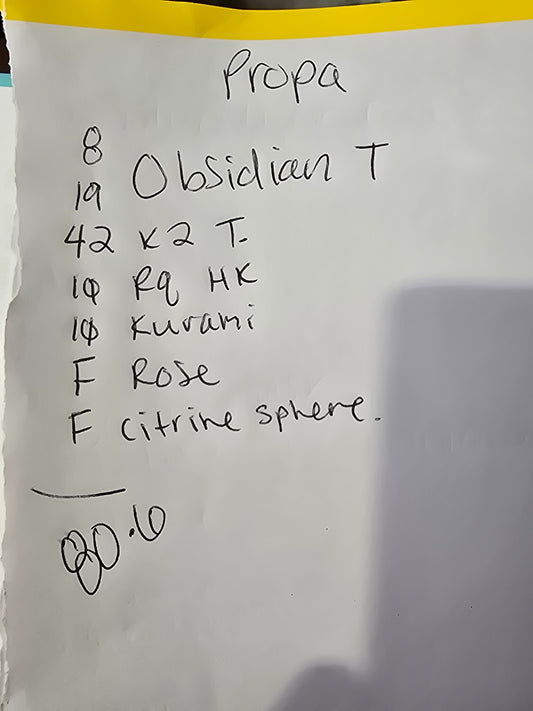 Propa
8
19 Obsidian T
42 K2 T.
10 RQ HK
10 Kurami
F Rose
F Citrine sphere.